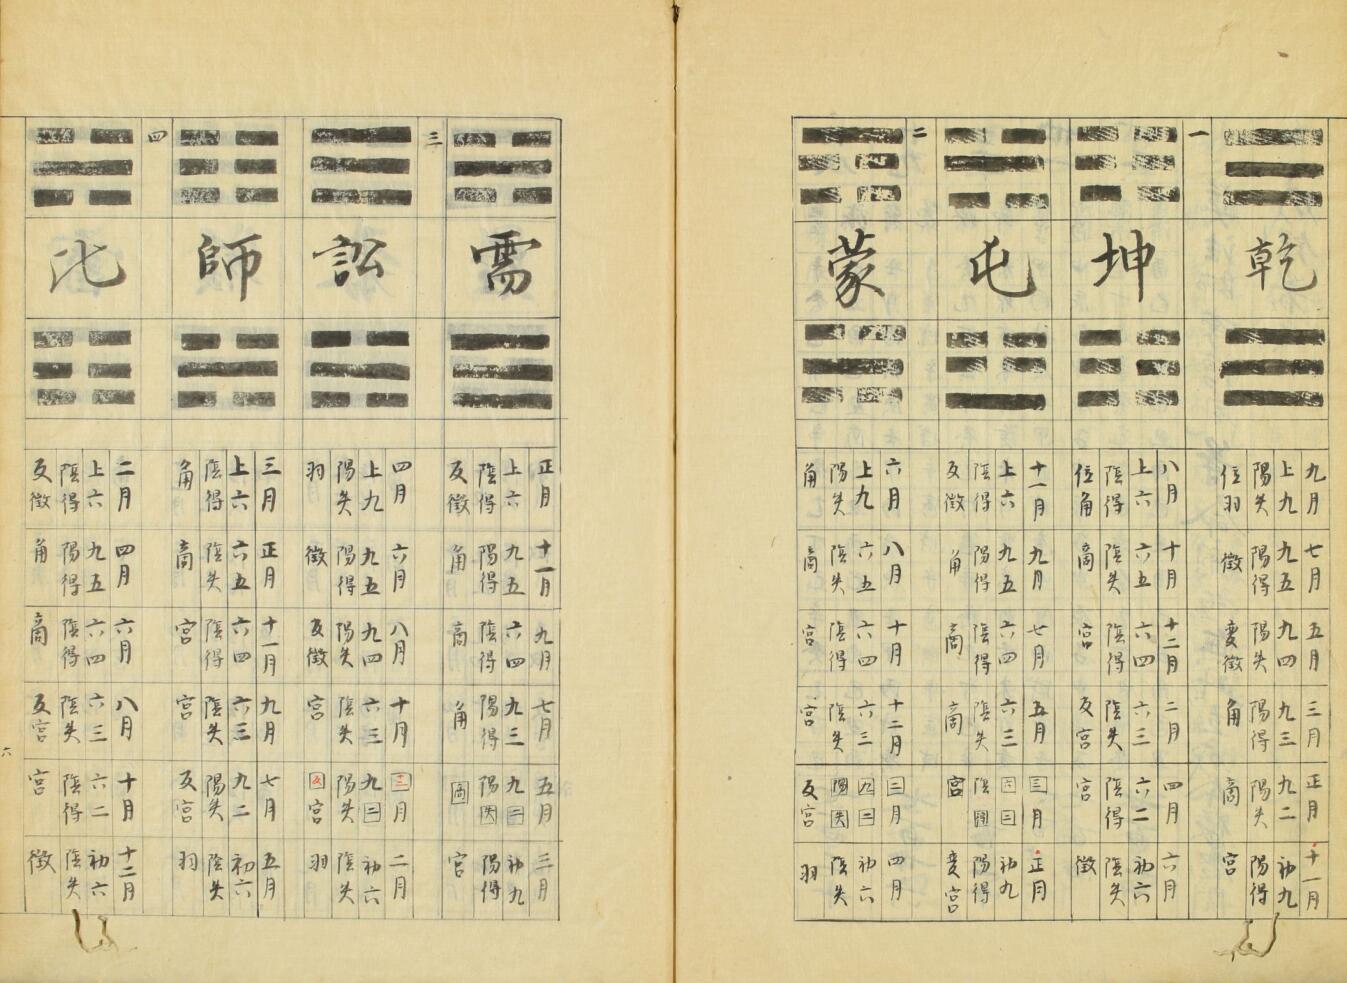 乾
九月 上九 陽失 位羽
七月 九五 陽得 徵
五月 九四 陽失 変徵
三月 九三 陽得 角
正月 九二 陽失 商
十一月 初九 陽得 宮
一
坤
八月 上六 陰得 位角
十月 六五 陰失 商
十二月 六四 陰得 宮
二月 六三 陰失 反宮
四月 六二 陰得 宮
六月 初六 陰失 徵
屯
十一月 上六 陰得 反徵
九月 九五 陽得 角
七月 六四 陰得 商
五月 六三 陰失 商
三月 六二 陰得 宮
正月 初九 陽得 変宮
二
蒙
六月 上九 陽失 角
八月 六五 陰失 商
十月 六四 陰得 宮
十二月 六三 陰失 宮
三月 九二 陽失 反宮
四月 初六 陰失 羽
需
正月 上六 陰得 反徵
十一月 九五 陽得 角
九月 六四 陰得 商
七月 九三 陽得 角
五月 九二 陽失 商
三月 初九 陽得 宮
三
訟
四月 上九 陽失 羽
六月 九五 陽得 徵
八月 九四 陽失 反徵
十月 六三 陰失 宮
十二月 九二 陽失 反宮
二月 初六 陰失 羽
師
三月 上六 陰得 角
正月 六五 陰失 商
十一月 六四 陰得 宮
九月 六三 陰失 宮
七月 九二 陽失 反宮
五月 初六 陰失 羽
四
比
二月 上六 陰得 反徵
四月 九五 陽得 角
六月 六四 陰得 商
八月 六三 陰失 反宮
十月 六二 陰得 宮
十二月 初六 陰失 徵
六